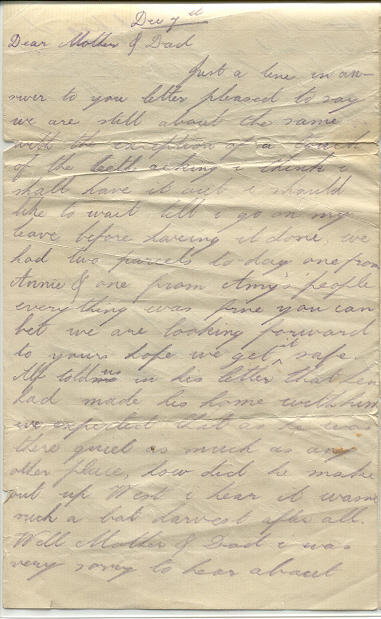 Dec 7th
Dear Mother & Dad
Just a line in an-
swer to you letter pleased to say
we are still about the same
with the exception of a touch
of the teeth aching i think i
shall have it out i should
like to wait till i go on my
leave before having it done, we
had two parcels to-day one from
Annie & one from Amy's people
everything was fine you can
bet we are looking forward
to yours hope we get it safe.
Alf told us in his letter that
had made his home with him
we expected that as he was
there quiet as much as any
other place, how did he make
out up West i hear it wasnt
such a bad harvest after all.
Well Mother & Dad i was
very sorry to hear about